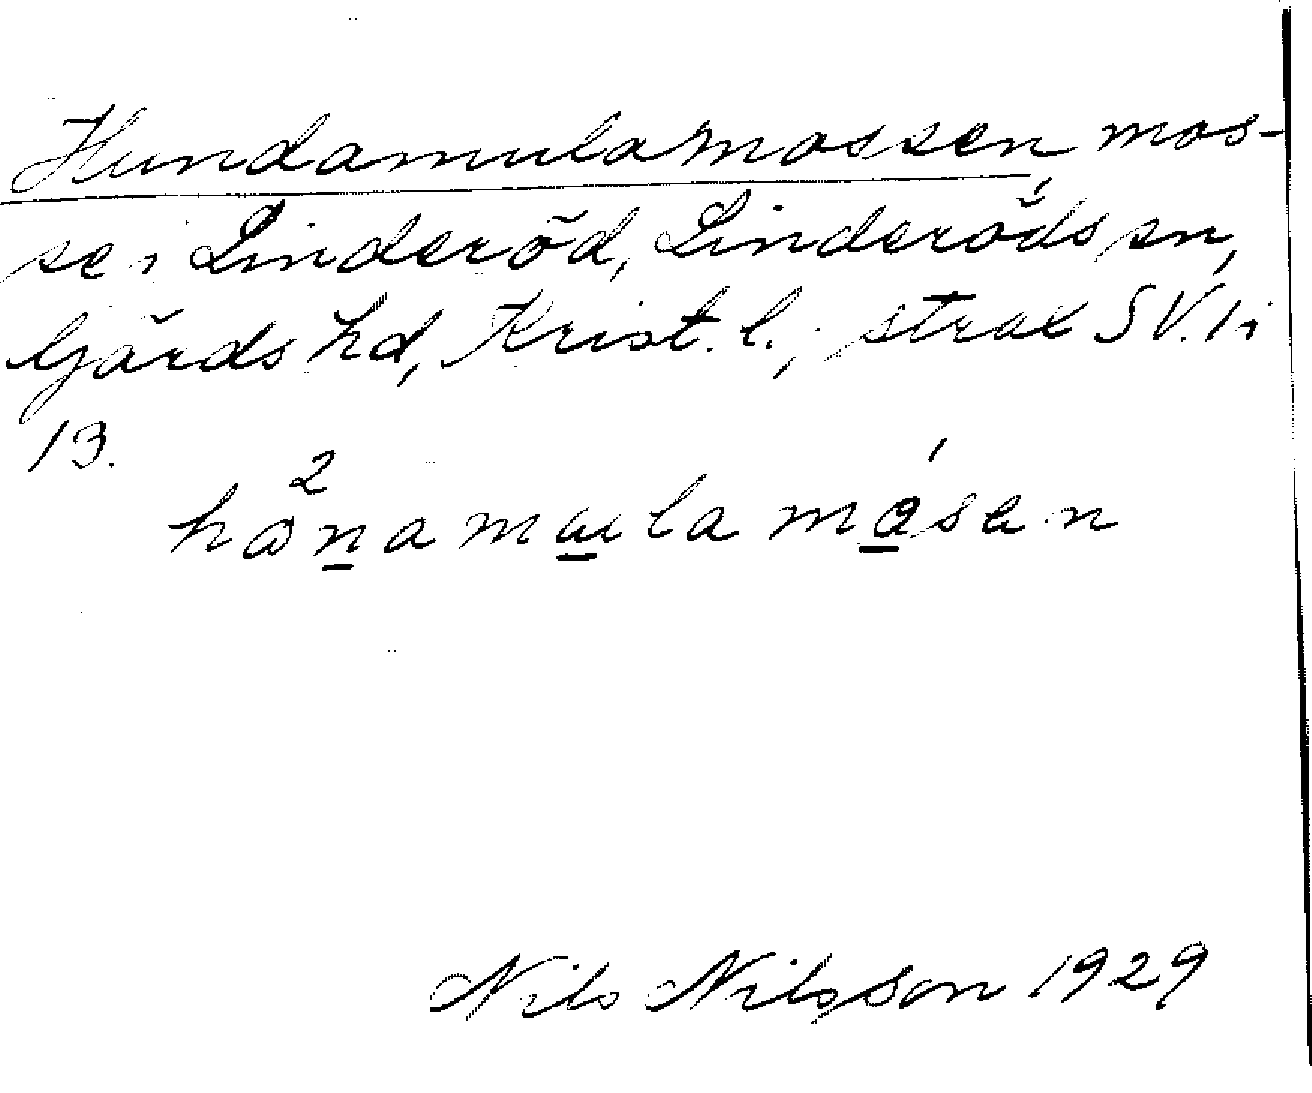 Hundamulamossen, mos-
se i Linderöd, Linderöds sn,
Gärds hd, Krist. l.; strax SV. Li
13.
2
hana maula måsen
Nils Nilsson 1929